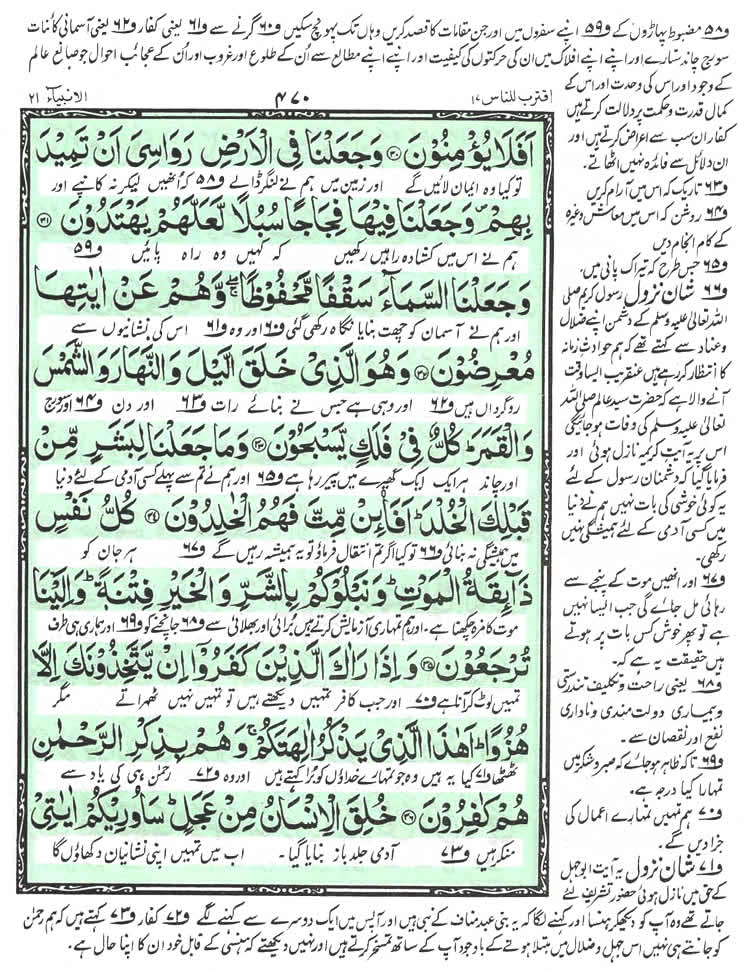 و۵۸ مضبوط پہاڑوں کے و۵۹ اپنے سفروں میں اور جن مقامات کا قصد کریں وہاں تک پہونچ سکیں و۶۰ گرنے سے و۶۱ یعنی کفار و۶۲ یعنی آسمانی کائنات
سورج چاند ستارے اور اپنے اپنے افلاک میں ان کی حرکتوں کی کیفیت اور اپنے اپنے مطالع سے اُن کے طلوع اور غروب اور اُن کے عجائب احوال جو صانع عالم
اقترب للناس ۱۷
۴۷۰
الانبیآء ۲۱
اَفَلَا یُؤْمِنُوْنَ ۳۰ وَجَعَلْنَا فِی الْاَرْضِ رَوَاسِیَ اَنْ تَمِیْدَ
تو کیا وہ ایمان لائیں گے اور زمین میں ہم نے لنگر ڈالے و۵۸ کہ اُنھیں لیکر نہ کانپے اور
بِهِمْ وَجَعَلْنَا فِیْهَا فِجَاجًا سُبُلًا لَّعَلَّهُمْ یَهْتَدُوْنَ ۳۱
ہم نے اس میں کشادہ راہیں رکھیں کہ کہیں وہ راہ پائیں و۵۹
وَجَعَلْنَا السَّمَآءَ سَقْفًا مَّحْفُوْظًا ۖۚ وَّهُمْ عَنْ اٰیٰتِهَا
اور ہم نے آسمان کو چھت بنایا نگاہ رکھی گئی و۶۰ اور وہ و۶۱ اس کی نشانیوں سے
مُعْرِضُوْنَ ۳۲ وَهُوَ الَّذِیْ خَلَقَ الَّیْلَ وَالنَّهَارَ وَالشَّمْسَ
روگرداں ہیں و۶۲ اور وہی ہے جس نے بنائے رات و۶۳ اور دن و۶۴ اور سورج
وَالْقَمَرَ ؕ كُلٌّ فِیْ فَلَكٍ یَّسْبَحُوْنَ ۳۳ وَمَا جَعَلْنَا لِبَشَرٍ مِّنْ
اور چاند ہر ایک ایک گھیرے میں پیر رہا ہے و۶۵ اور ہم نے تم سے پہلے کسی آدمی کے لئے دنیا
قَبْلِكَ الْخُلْدَ ؕ اَفَا۟ئِنْ مِّتَّ فَهُمُ الْخٰلِدُوْنَ ۳۴ كُلُّ نَفْسٍ
میں ہمیشگی نہ بنائی و۶۶ تو کیا اگر تم انتقال فرماؤ تو یہ ہمیشہ رہیں گے و۶۷ ہر جان کو
ذَآىِٕقَةُ الْمَوْتِ ؕ وَنَبْلُوْكُمْ بِالشَّرِّ وَالْخَیْرِ فِتْنَةً ؕ وَاِلَیْنَا
موت کا مزہ چکھنا ہے۔ اور ہم تمہاری آزمایش کرتے ہیں بُرائی اور بھلائی سے و۶۸ جانچنے کو و۶۹ اور ہماری ہی طرف
تُرْجَعُوْنَ ۳۵ وَاِذَا رَاٰكَ الَّذِیْنَ كَفَرُوْۤا اِنْ یَّتَّخِذُوْنَكَ اِلَّا
تمہیں لوٹ کر آنا ہے و۷۰ اور جب کافر تمہیں دیکھتے ہیں تو تمہیں نہیں ٹھہراتے مگر
هُزُوًا ؕ اَهٰذَا الَّذِیْ یَذْكُرُ اٰلِهَتَكُمْ ۚ وَهُمْ بِذِكْرِ الرَّحْمٰنِ
ٹھٹھا و۷۱ کیا یہ ہیں وہ جو تمہارے خداؤں کو بُرا کہتے ہیں اور وہ و۷۲ رحمٰن ہی کی یاد سے
هُمْ كٰفِرُوْنَ ۳۶ خُلِقَ الْاِنْسَانُ مِنْ عَجَلٍ ؕ سَاُورِیْكُمْ اٰیٰتِیْ
منکر ہیں و۷۳ آدمی جلد باز بنایا گیا۔ اب میں تمہیں اپنی نشانیاں دکھاؤں گا
کے وجود اور اس کی وحدت اور اس کے
کمال قدرت و حکمت پر دلالت کرتے ہیں
کفار ان سب سے اعراض کرتے ہیں اور
ان دلائل سے فائدہ نہیں اٹھاتے۔
و۶۳ تاریک کہ اس میں آرام کریں
و۶۴ روشن کہ اس میں معاش وغیرہ
کے کام انجام دیں
و۶۵ جس طرح کہ تیراک پانی میں۔
و۶۶ شان نزول رسول کریم صلی
اللہ تعالٰی علیہ وسلم کے دشمن اپنے ضلال
و عناد سے کہتے تھے کہ ہم حوادث زمانہ
کا انتظار کر رہے ہیں عنقریب ایسا وقت
آنے والا ہے کہ حضرت سید عالم صلی اللہ
تعالٰی علیہ وسلم کی وفات ہو جائیگی
اس پر یہ آیت کریمہ نازل ہوئی اور
فرمایا گیا کہ دشمنان رسول کے لئے
یہ کوئی خوشی کی بات نہیں ہم نے دنیا
میں کسی آدمی کے لئے ہمیشگی نہیں
رکھی۔
و۶۷ اور انھیں موت کے پنجے سے
رہائی مل جائے گی جب ایسا نہیں
ہے تو پھر خوش کس بات پر ہوتے
ہیں حقیقت یہ ہے کہ۔
و۶۸ یعنی راحت و تکلیف تندرستی
و بیماری دولت مندی و ناداری
نفع اور نقصان سے۔
و۶۹ تاکہ ظاہر ہو جائے کہ صبر و شکر میں
تمہارا کیا درجہ ہے۔
و۷۰ ہم تمہیں تمہارے اعمال کی
جزا دیں گے۔
و۷۱ شان نزول یہ آیت ابوجہل
کے حق میں نازل ہوئی حضور تشریف لئے
جاتے تھے وہ آپ کو دیکھ کر ہنسا اور کہنے لگا کہ یہ بنی عبد مناف کے نبی ہیں اور آپس میں ایک دوسرے سے کہنے لگے و۷۲ کفار و۷۳ کہتے ہیں کہ ہم رحمٰن
کو جانتے ہی نہیں اس جہل و ضلال میں مبتلا ہونے کے باوجود آپ کے ساتھ تمسخر کرتے ہیں اور نہیں دیکھتے کہ ہنسی کے قابل خود ان کا اپنا حال ہے۔